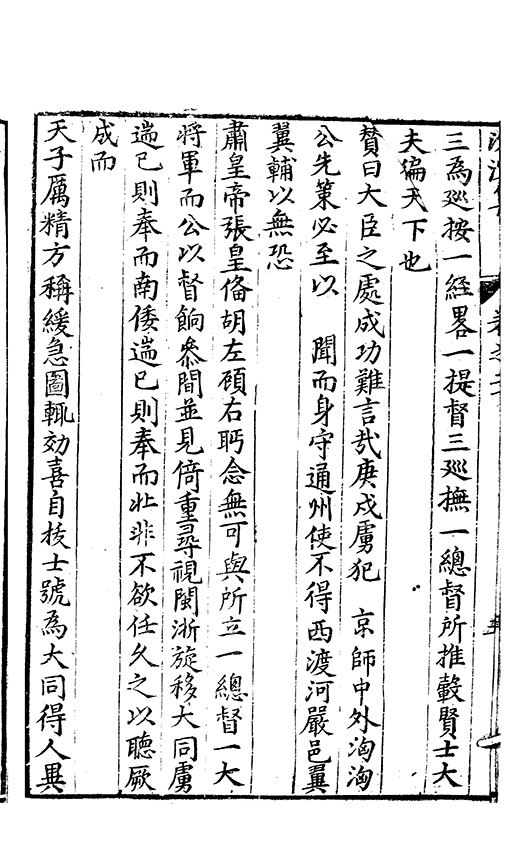 三為巡按一經畧一提督三巡撫一總督所推轂賢士大
夫徧天下也
賛曰大臣之處成功難言㢤庚戍虜犯　京師中外洶洶
公先策必至以　聞而身守通州使不得西渡河嚴邑翼
翼輔以無恐
肅皇帝張皇俻胡左顧右眄念無可與所立一總督一大
將軍而公以督餉叅間並見倚重尋視閩浙旋移大同虜
遄已則奉而南倭遄已則奉而北非不欲任久之以聽厥
成而
天子厲精方稱緩急圖輒効喜自拔士號為大同得人異